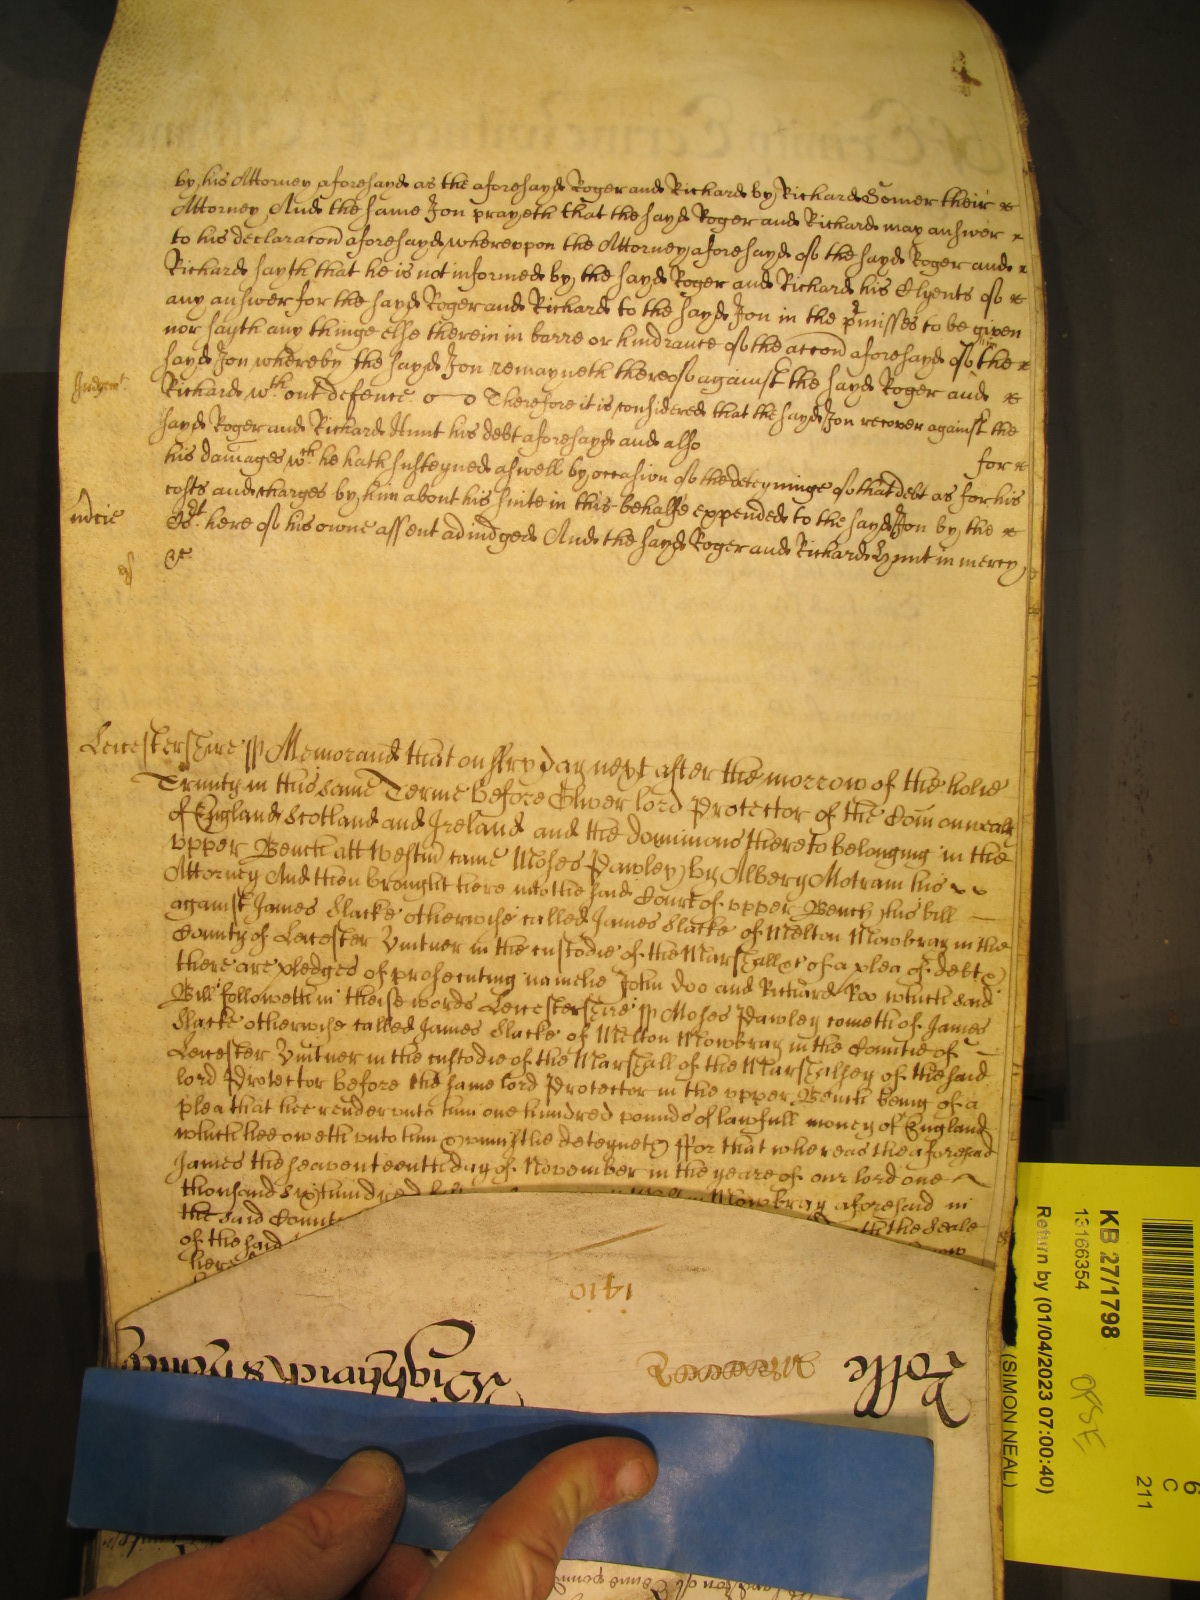 by his Attorney aforesayd as the aforesayd Roger and Richard by Richard Somer their
Attorney And the same Jon prayeth that the sayd Roger and Richard may answer
to his declaracon aforesayd whereupon the Attorney aforesayd of the sayd Roger and
Richard sayth that he is not informed by the sayd Roger and Richard his Clyents of
any answer for the sayd Roger and Richard to the sayd Jon in the pmisses to be given
nor sayth any thinge else therein in barre or hindrance of the accon aforesayd of the
sayd Jon whereby the sayd Jon remayneth thereof against the sayd Roger and
Judgmt
Richard wth out defence Therefore it is considered that the sayd Jon recover against the
sayd Roger and Richard Hunt his debt aforesayd and also for
his damages wch he hath susteyned aswell by occasion of the deteyninge of that debt as for his
costs and charges by him about his suite in this behalfe expended to the sayd Jon by the
mcie
Cort here of his owne assent adiudged And the sayd Roger and Richard Hunt in mercy
&c
Leicestershire ss Memorand that on ffryday next after the morrow of the holie
Trinity in this same Terme before Oliver lord Protector of the Comonwealth
of England Scotland and Ireland and the dominions thereto belonging in the
upper Bench att Westm came Moses Pawley by Albery Motram his
Attorney And then brought here into the said Court of upper Bench his bill
against James Slacke otherwise called James Slacke of Melton Mowbray in the
County of Leicester Vintner in the custodie of the Marshall &c of a plea of debt &
there are pledges of prosecuting namelie John Doo and Richard Roo which said
Bill followeth in theise words Leicestershire ss Moses Pawley cometh of James
Slacke otherwise called James Slacke of Melton Mowbray in the Countie of
Leicester Vintner in the custodie of the Marshall of the Marshalsey of the said
lord Protector before the same lord Protector in the upper Bench being of a
plea that hee render unto him one hundred pounds of lawfull money of England
which hee oweth unto him & uniustlie deteyneth ffor that whereas the aforesaid
James the seaventeenth day of November in the yeare of our lord one
thousand six hundred Mowbray aforesaid in
the said Count the Seale
of the said
here
1410
Rolle
Wightwick &
KB 27/1798
13166354
Return by (01/04/2023 07:00:40)
(SIMON NEAL)
OPSE
6
C
211